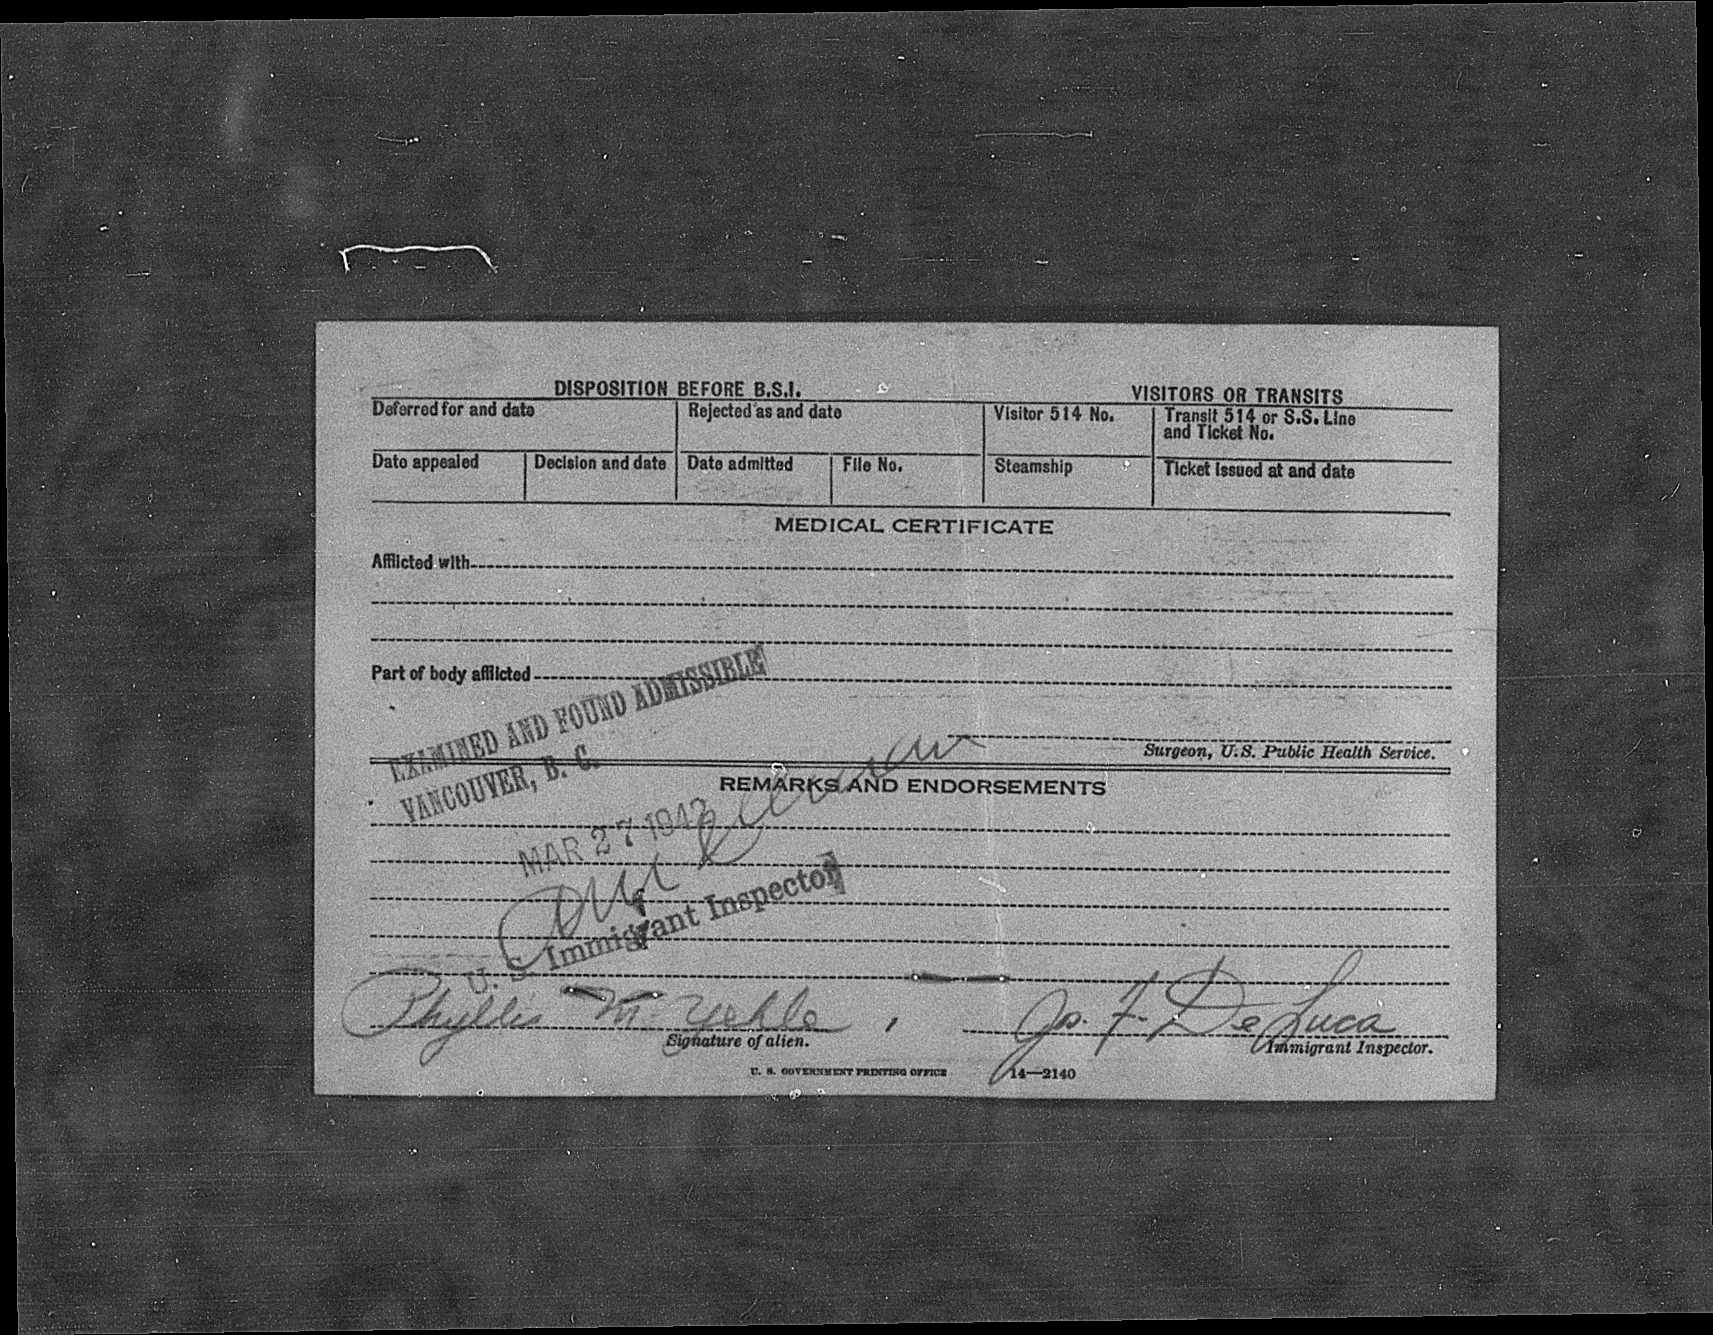 DISPOSITION BEFORE B.S.I. VISITORS OR TRANSITS
Deferred for and date Rejected as and date Visitor 514 No. Transit 514 or S.S. Line
and Ticket No.
Date appealed Decision and date Date admitted File No. Steamship Ticket issued at and date
MEDICAL CERTIFICATE
Afflicted with
Part of body afflicted
EXAMINED AND FOUND ADMISSIBLE
VANCOUVER, B. C.
Surgeon, U.S. Public Health Service.
REMARKS AND ENDORSEMENTS
MAR 27 1942
U. S. Immigrant Inspector
Phyllis M. Yehle Jos. F. De Luca
Signature of alien. Immigrant Inspector.
U. S. GOVERNMENT PRINTING OFFICE 14—2140